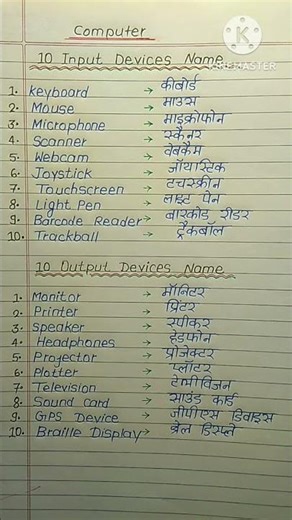 Computer
10 Input Devices Name
1. keyboard → कीबोर्ड
2. Mouse → माउस
3. Microphone → माइक्रोफोन
4. Scanner → स्कैनर
5. Webcam → वेबकैम
6. Joystick → जॉयास्टिक
7. Touchscreen → टचस्क्रीन
8. Light Pen → लाइट पेन
9. Barcode Reader → बारकोड रीडर
10. Trackball → ट्रैकबॉल
10 Output Devices Name
1. Monitor → मॉनिटर
2. Printer → प्रिंटर
3. speaker → स्पीकर
4. Headphones → हेडफोन
5. Projector → प्रोजेक्टर
6. Plotter → प्लॉटर
7. Television → टेलीविजन
8. Sound card → साउंड कार्ड
9. GPS Device → जीपीएस डिवाइस
10. Braille Display → ब्रेल डिस्प्ले